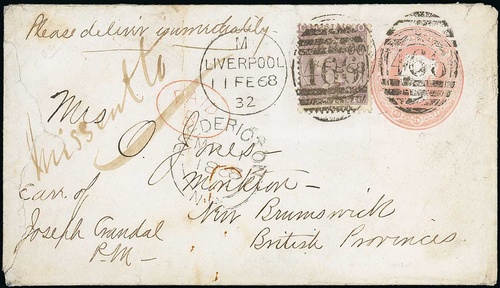 Please deliver immediately
M
LIVERPOOL
11 FE 68
32
466
466
Missent to
PAID
FREDERICTON
Mrs O. Jones
Monkton
New Brunswick
British Provinces
Care of
Joseph Crandal
P.M